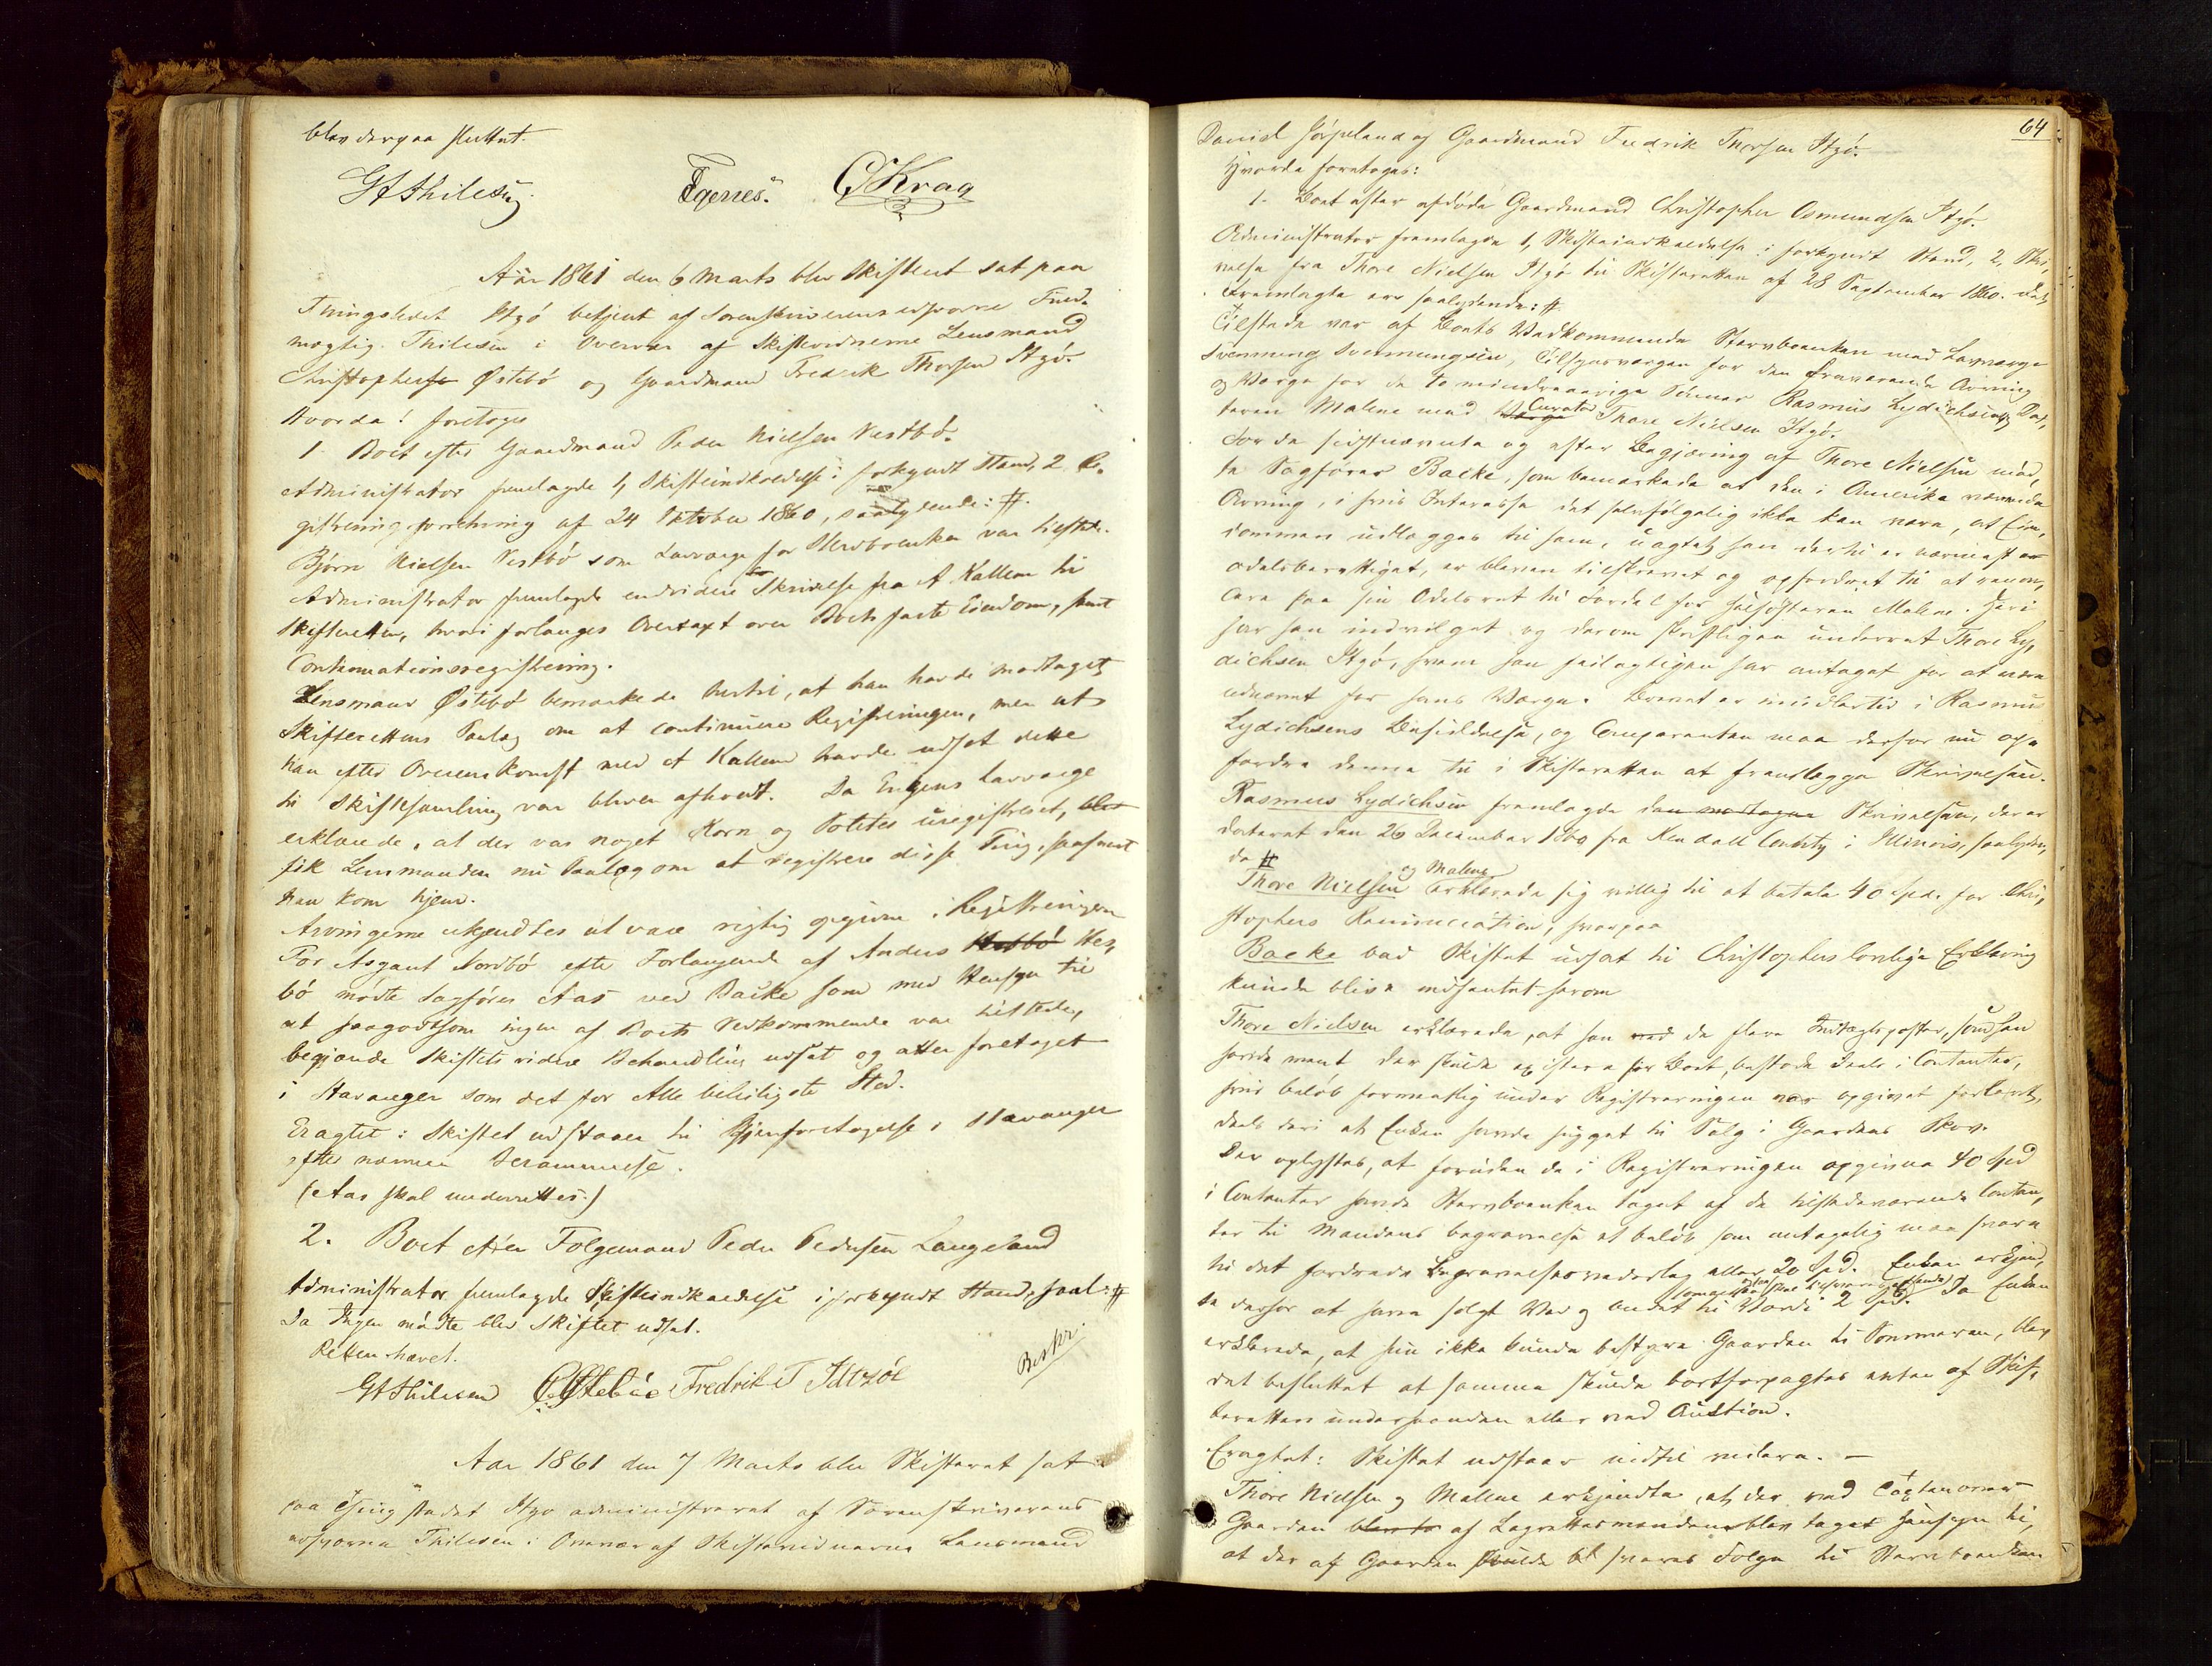 blev derpaa sluttet.
GA Thilesen. Egenes. C Krag
Aar 1861 den 6 Marts blev Skifteret sat paa
Thingstedet Htzö betjent af Sorenskriverens edsvorne Fuld-
mægtig Thilesen i Overvær af Skiftevidnerne Lensmand
Christophersen Østebö og Gaardmand Fredrik Thorsen Htzö.
Hvorda! foretoges
1. Boet efter Gaardmand Peder Nielsen Vestbö.
Administrator fremlagde 1, Skifteindkaldelse i forkyndt Stand, 2 Re-
gistreringsforretning af 24 Oktober 1860, saalydende: #.
Björn Nielsen Vestbö som Laugværge for Stervboenken var tilstede.
Administrator fremlagde endvidere en Skrivelse fra A Kallem til
Skifteretten, hvori forlanges Overtaxt over Boets faste Eiendom, samt
Continuationsregistrering.
Lensmand Østebö bemærkede hertil, at han havde modtaget
Skifterettens Paalæg om at continuere Registreringen, men at
han efter Overenskomst med A Kallem havde udsat dette
til Skiftesamling var bleven afholdt. Da Enkens Laugværge
erklærede, at der var noget Korn og Poteter uregistreret, blev
fik Lensmanden nu Paalæg om at registrere disse Ting, saasnart
han kom hjem.
Arvingerne erkjendtes at være rigtig opgivne i Registreringen
For Asgaut Nordbö efter Forlangende af Anders Hesbö Hes-
bö mødte Sagförer Aas ved Backe som med Hensyn til
at saagodtsom ingen af Boets Vedkommende var tilstede,
begjærede Skiftets videre Behandling udsat og atter foretaget
i Stavanger som det for Alle beleiligste Sted.
Eragtet: Skiftet udstaaer til Gjenforetagelse i Stavanger
efter nærmere Berammelse.
(Aas skal underrettes.)
2. Boet efter Folgemand Peder Pedersen Langeland
Administrator fremlagde Skifteindkaldelse i forkyndt Stand, saal: #
Da Ingen mödte blev Skiftet udsat.
Retten hævet.
GA Thilesen C Östebö Fredrik T Htzöe
Aar 1861 den 7 Marts blev Skifteret sat
paa Thingstedet Htzö administreret af Sorenskriverens
edsvorne Thilesen i Overvær af Skiftevidnerne Lensmand
64
Daniel Jörpeland og Gaardmand Fredrik Thorsen Htzö.
Hvorda foretoges:
1. Boet efter afdöde Gaardmand Christopher Osmundsen Htzö.
Administrator fremlagde 1, Skifteindkaldelse i forkyndt Stand, 2, Skri-
velse fra Thore Nielsen Htzö til Skifteretten af 28 September 1860. Det
Fremlagte er saalydende: #.
Tilstede var af Boets Vedkommende Stervboenken med Laugværge
Svenning Svenningsen, Tilsynsværgen for den fraværende Arving
og Værge for de to mindreaarige Sönner Rasmus Lydichsen, Dat-
teren Malene med Værge Curator Thore Nielsen Htzö.
For de sidstnævnte og efter Begjæring af Thore Nielsen möd-
te Sagförer Backe, som bemærkede at den i Amerika værende
Arving, i hvis Interesse det selvfölgelig ikke kan være, at Eien-
dommen udlægges til ham, uagtet han dertil er nærmest
odelsberettiget, er bleven tilskrevet og opfordret til at renon-
cere paa sin Odelsret til Fordel for Halvsösteren Malene. Heri
har han indvilget og derom skriftligen underrettet Thore Ly-
dichsen Htzö, hvem han feilagtigen har antaget for at være
udnævnt for hans Værge. Brevet er imidlertid i Rasmus
Lydichsens Besiddelse, og Comparenten maa derfor nu op-
fordre denne til i Skifteretten at fremlægge Skrivelsen.
Rasmus Lydichsen fremlagde den modtagne Skrivelsen, der er
dateret den 26 December 1860 fra Kendall County i Illinois, saalyden-
de #
Thore Nielsen og Malene erklærede sig villig til at betale 40 Spd. for Chri-
stophers Renunciation, hvorpaa
Backe bad Skiftet udsat til Christophers lovlige Erklæring
kunde blive indhentet herom
Thore Nielsen erklærede, at han ved de flere Indtægtsposter, som han
havde meent der skulde existere for Boet, bestode Deels i Contanter,
hvis belöb formentlig under Registreringen var opgivet forlavt,
deels deri at Enken havde hugget til Salg i Gaardens Skov.
Der oplystes, at foruden de i Registreringen opgivne 40 Spd
i Contanter havde Stervboenken taget af de tilstedeværende Contan-
ter til Mandens begravelse et beløb som antagelig maa svare
til det fordrede Begravelsesvederlag eller 20 Spd. Enken erkjend-
te derfor at have solgt Ved og andet til Værdi 2 Spd. Da Enken
erklærede, at hun ikke kunde bestyre Gaarden til Sommeren, blev
det besluttet at samme skulde bortforpagtes enten af Skif-
teretten underhaanden eller ved Auktion.
Eragtet: Skiftet udstaar indtil videre. —
Thore Nielsen og Malene erkjendte, at der ved Taxten over
Gaarden blev to af Lagrettesmændene blev taget Hensyn til,
at der af Gaarden skulde bl svares Folge til Stervboenken